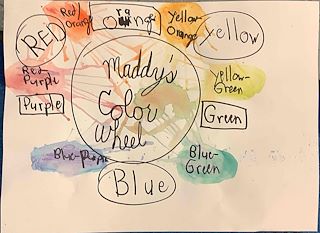 RED
Red/
Orange
Orange
Yellow
Orange
Yellow
Red-
Purple
Maddy's
Color
Wheel
Yellow-
Green
Purple
Green
Blue-Purple
Blue-
Green
Blue